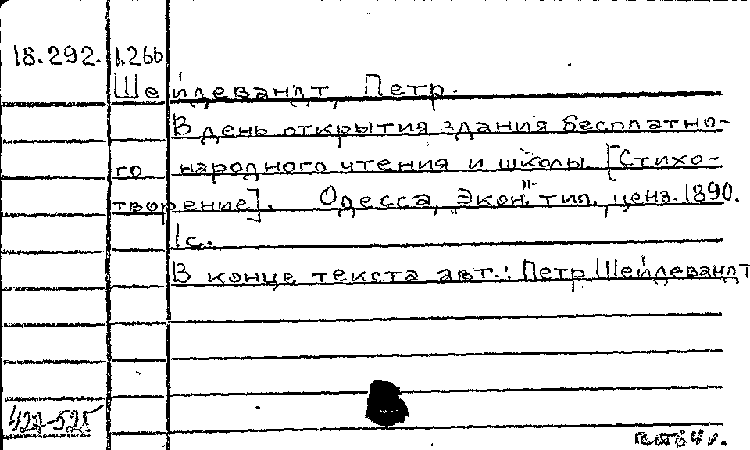 18.292. 1.266
Шейдевандт, Петр.
В день открытия здания бесплатно-
го народного чтения и школы. [Стихо-
творение]. Одесса, "Экон." тип., ценз. 1890.
1 с.
В конце текста авт.: Петр Шейдевандт
427-525